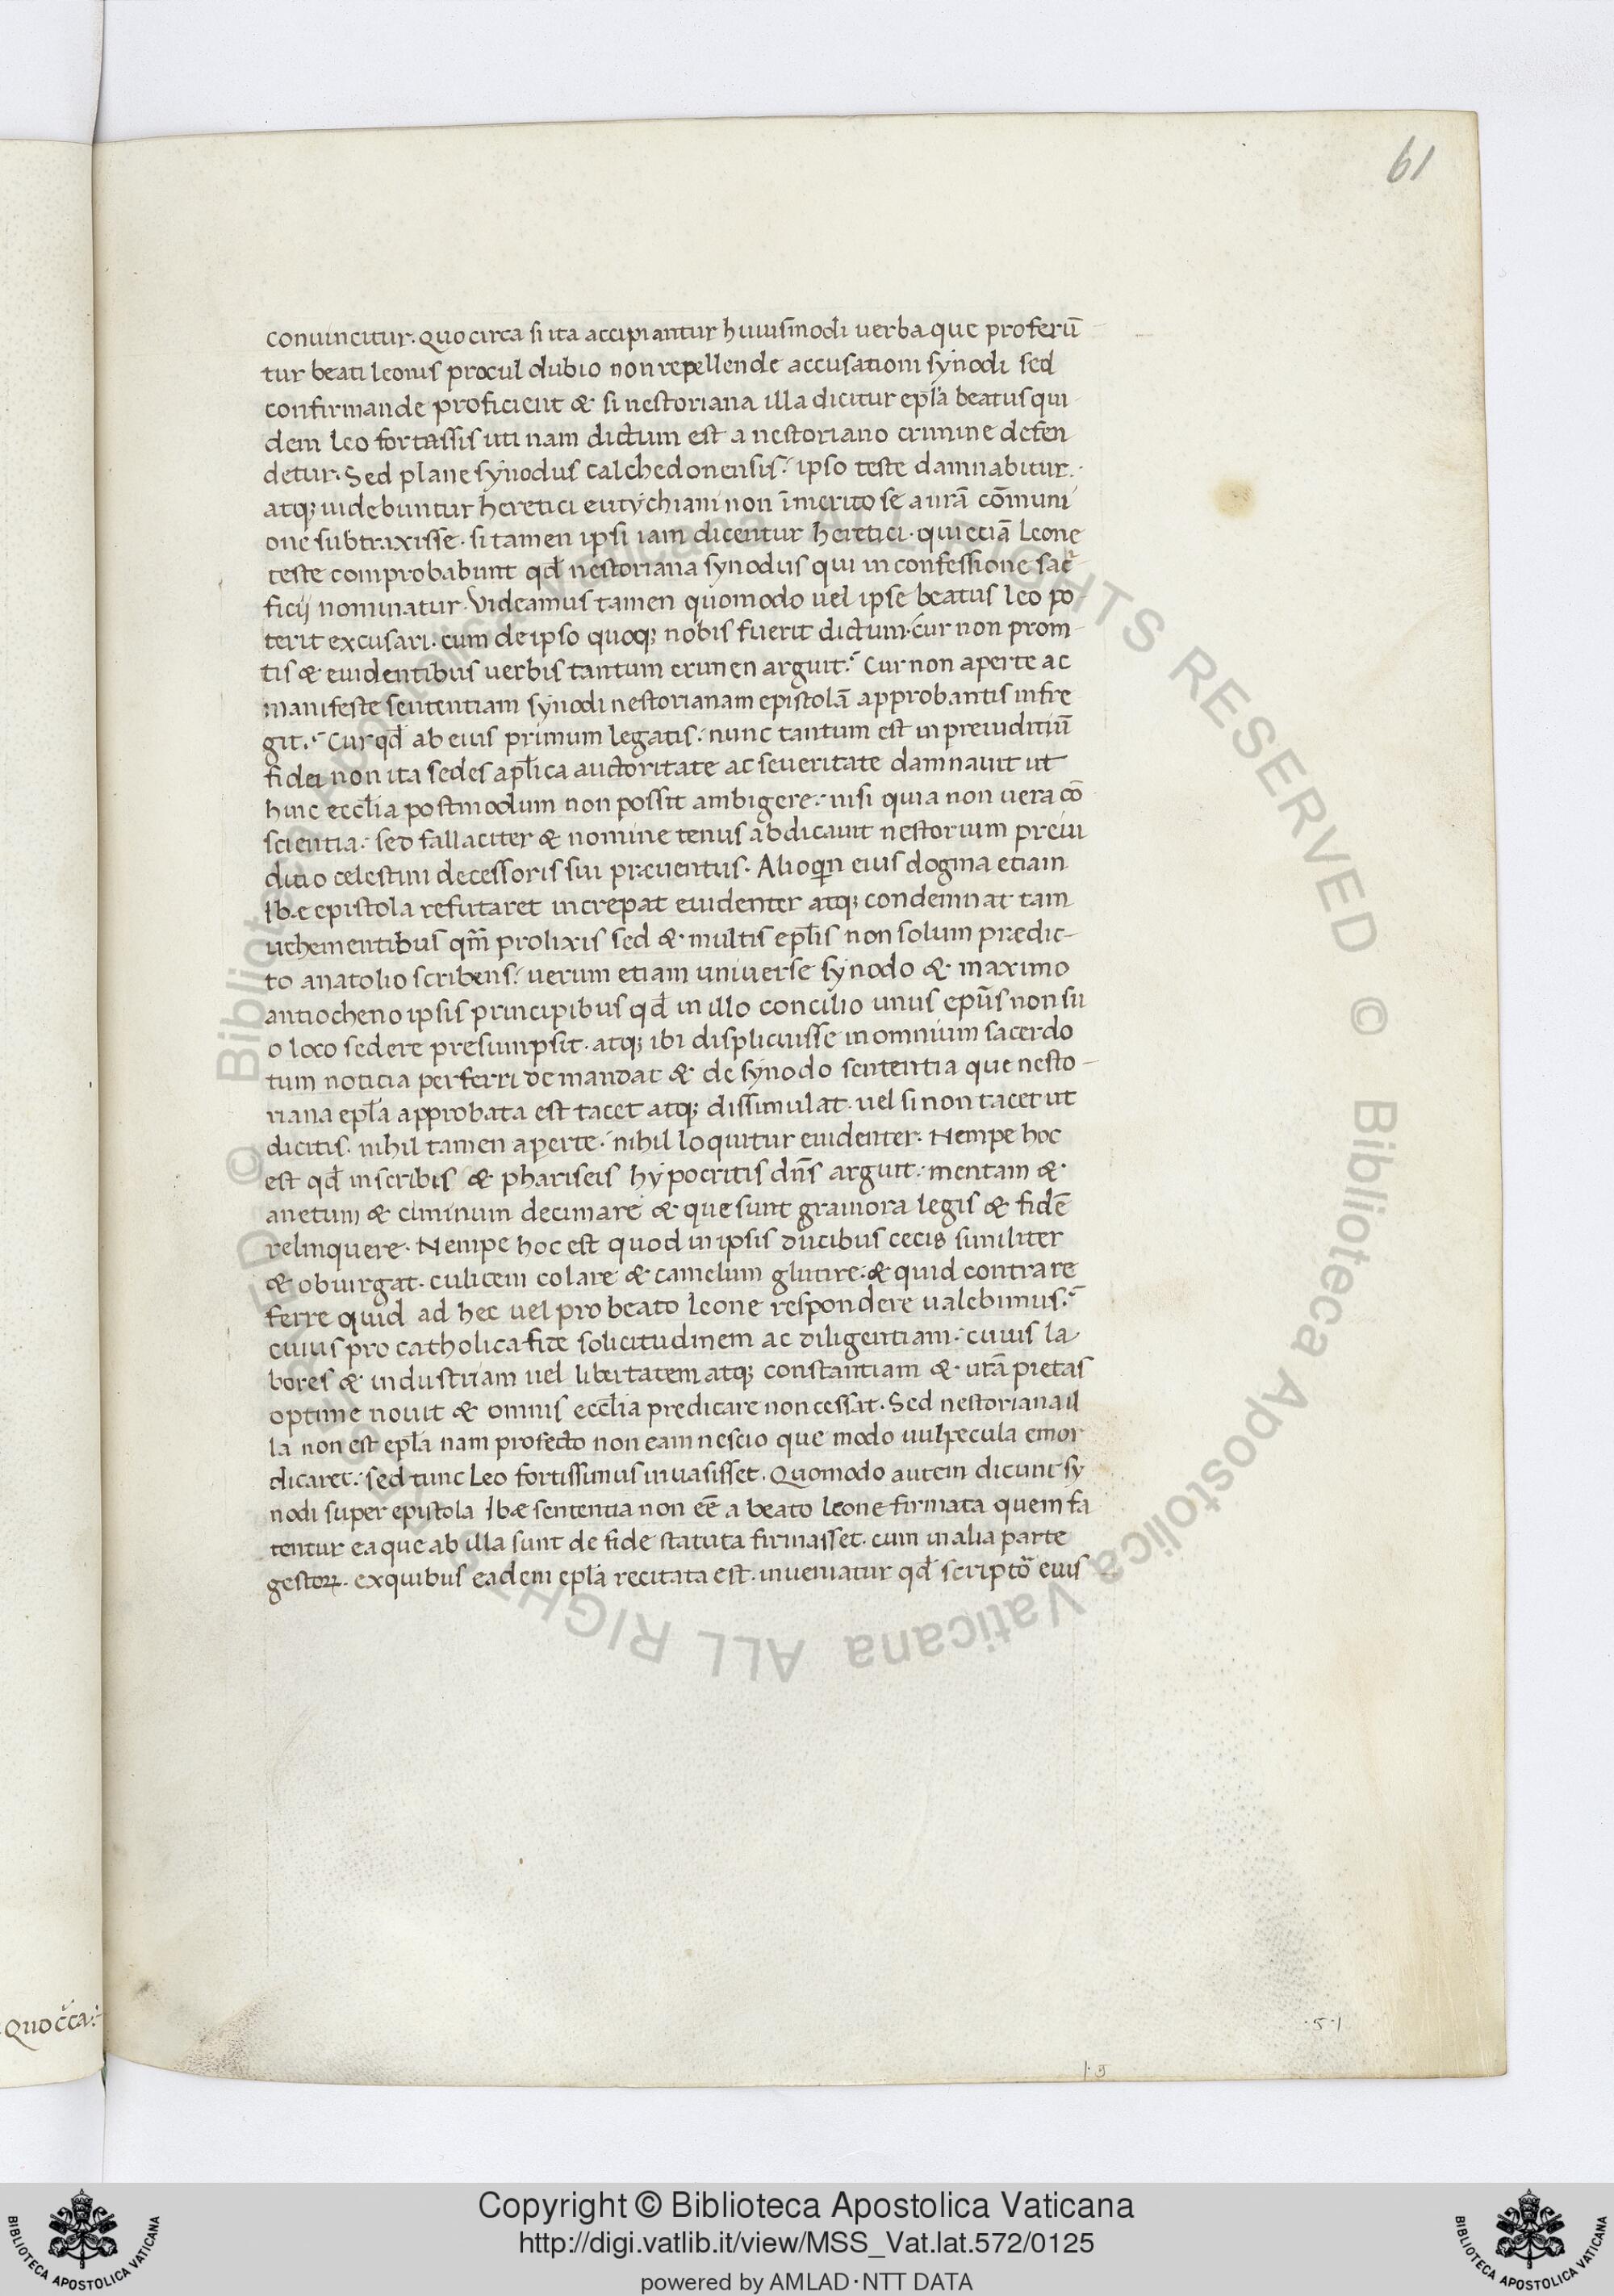 61
conuincitur. quocirca si ita accipiantur huiusmodi uerba que proferū
tur beati leonis procul dubio non repellende accusationi synodi sed
confirmande proficient & si nestoriana illa dicitur epl̄a beatus qui
dem leo fortassis uti nam dictum est a nestoriano crimine defen
detur. Sed plane synodus calchedonensis: ipso teste damnabitur.
atq; uidebuntur heretici eutychiani non īmerito se a nrā cōmuni
one subtraxisse. si tamen ipsi iam dicentur heretici. qui eciā Leone
teste comprobabunt qd̄ nestoriana synodus qui in confessione
ficij nominatur. Videamus tamen quomodo uel ipse beatus leo po-
terit excusari. cum de ipso quoq; nobis fuerit dictum. cur non prom-
tis & euidentibus uerbis tantum crimen arguit? Cur non aperte ac
manifeste sententiam synodi nestorianam epistolā approbantis infre
git? Cur qd̄ ab eius primum legatis: nunc tantum est in preiuditiū
fidei non ita sedes apl̄ica auctoritate ac seueritate damnauit ut
hinc eccl̄ia postmodum non possit ambigere: nisi quia non uera cō
scientia: sed fallaciter & nomine tenus abdicauit nestorium preiu
ditio celestini decessoris sui præuentus. Alioqin eius dogma etiam
Ibæ epistola refutaret increpat euidenter atq; condemnat tam
uehementibus qm̄ prolixis sed & multis epl̄is non solum prædic-
to anatolio scribens: uerum etiam uniuerse synodo & maximo
antiocheno ipsis principibus qd̄ in illo concilio unus epūs non su
o loco sedere presumpsit. atq; ibi displicuisse in omnium sacerdo
tum noticia perferri demandat & de synodo sententia que nesto-
riana epl̄a approbata est tacet atq; dissimulat. uel si non tacet ut
dicitis. nihil tamen aperte: nihil loquitur euidenter. Nempe hoc
est qd̄ in scribis & phariseis hypocritis dn̄s arguit: mentam &
anetum & ciminum decimare & que sunt grauiora legis & fidē
relinquere. Nempe hoc est quod in ipsis ducibus cecis similiter
& obiurgat. culicem colare & camelum glutire. & quid contra re
ferre quid ad hec uel pro beato leone respondere ualebimus?
cuius pro catholica fide solicitudinem ac diligentiam: cuius la
bores & industriam uel libertatem atq; constantiam & urā pietas
optime nouit & omnis eccl̄ia predicare non cessat. Sed nestoriana il
la non est epl̄a nam profecto non eam nescio que modo uulpecula emor
dicaret: sed tunc Leo fortissimus inuasisset. Quomodo autem dicunt sy
nodi super epistola Ibæ sententia non eē a beato leone firmata quem fa
tentur ea que ab illa sunt de fide statuta firmasset. cum in alia parte
gestoꝝ. ex quibus eadem epl̄a recitata est. inueniatur qd̄ scripto eius
.5.1
1.5
Copyright © Biblioteca Apostolica Vaticana
http://digi.vatlib.it/view/MSS_Vat.lat.572/0125
powered by AMLAD·NTT DATA
BIBLIOTECA APOSTOLICA VATICANA
BIBLIOTECA APOSTOLICA VATICANA